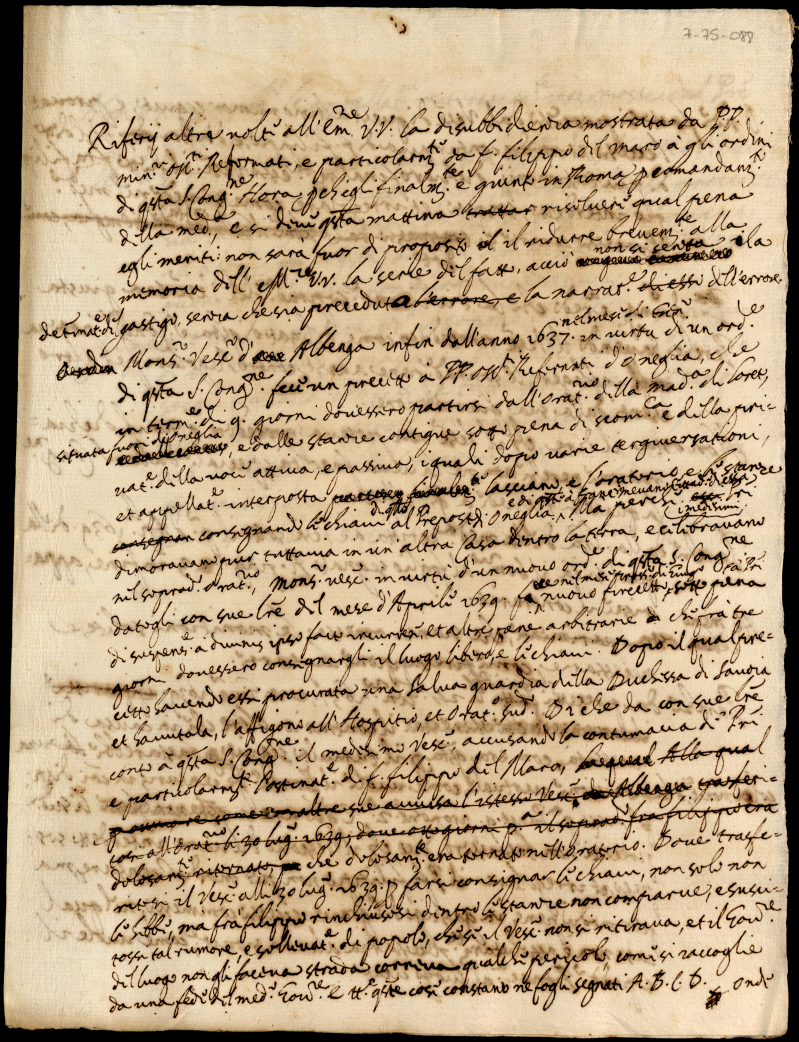 7-75-088
Riferij altre volte all'Em.ze V.V. la disubbidienza mostrata da PP.
min.ri oss.ti Reformati, e particolarm.te da f. filippo del Maro à gli ordini
di q.sta S. Cong.ne Hora, p che egli finalm.te è giunto in Roma p comandam.to
della med.a, e si deve q.sta mattina trattar risolvere qual pena
egli meriti: non sarà fuor di proposito il il ridurre brevem.te alla
memoria dell'Em.ze V.V. la serie del fatto, acciò non si senta la
determinat.e di gastigo, senza che sia preceduta l'errore, e la narrat.e di esso dell'errore.
Mons.r Vesc.o d' Albenga infin dall'anno 1637. nel mese di in virtù di un ord.e
di q.sta S. Cong.ne fece un precetto à PP. Oss.ti Reformati d'Oneglia, che
in term.e di 9. giorni dovessero partirsi dall'Orat.rio della mad.a di Loret,
situata fuori di Oneglia, e dalle stanze contigue sotto pena di scom.ca e della pri-
vat.e della voce attiva, e passiva, i quali dopo varie tergiversationi,
et appellat.e interposta lasciano e l'oratorio, e le stanze
consegnan consegnando le chiavi al Preposto di Oneglia. Ma perche i medesimi Pri
dimoravano pur tuttavia in un'altra Casa dentro la terra, e celebravano
nel soprad.o Orat.rio, Mons.r Vesc.o in virtù d'un nuovo ord.e di q.sta S. Cong.ne
datogli con sue lre del mese d'Aprile 1639. fà nuovo precetto sotto pena
di suspens.e à divinis ipso facto incurren. et altre pene arbitrarie che frà tre
giorni dovessero consegnargli il luogo libero, e le chiavi. Dopo il qual pre-
cetto havendo essi procurata una salva guardia della Duchessa di Savoia
et havutala, l'affigono all'Hospitio, et Orat.o sud.o. Di che da con sue lre
conto à q.sta S. Cong.ne il medesimo Vesc.o, accusando la contumacia di Pri
e particolarm.te l'ostinat.e di f. filippo del Maro, Alla qual
come in altre sue avvisa l'istesso Vesc.o da Albenga trasferi-
tosi all'Orat.rio li 30 lug.o 1639, dove otto giorni p.a il soprad.o fra filippo era
dolosam.te ritornato, che dolosam.te era tornato nell'Oratorio. Dove trasfe-
ritosi il Vesc.o alli 30 lug.o 1639. p farsi consegnar le chiavi, non solo non
le hebbe, ma fra filippo rinchiusosi dentro le stanze non comparve, e susci-
tossi tal rumore, e sollevat.e di popolo, che se il Vesc.o non si ritirava, et il Gov.re
del luogo non gli faceva strada correva qualche pericolo, come si raccoglie
da una fede del med.o Gov.re e tt.e q.ste cose constano ne fogli segnati A. B. C. D. Onde